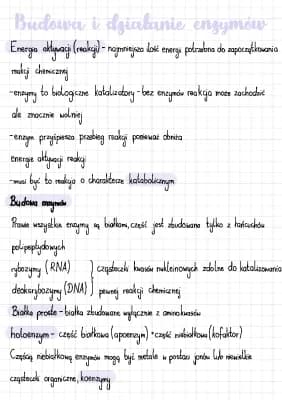 Budowa i działanie enzymów
Energia aktywacji (reakcji) - najmniejsza ilość energii potrzebna do zapoczątkowania
reakcji chemicznej
-enzymy to biologiczne katalizatory - bez enzymów reakcja może zachodzić
ale znacznie wolniej
-enzym przyspiesza przebieg reakcji ponieważ obniża
energię aktywacji reakcji
-musi być to reakcja o charakterze katabolicznym
Budowa enzymów
Prawie wszystkie enzymy są białkami, część jest zbudowana tylko z łańcuchów
polipeptydowych
rybozymy (RNA) } cząsteczki kwasów nukleinowych zdolne do katalizowania
deoksyrybozymy (DNA) } pewnej reakcji chemicznej
Białka proste - białka zbudowane wyłącznie z aminokwasów
holoenzym - część białkowa (apoenzym) + część niebiałkowa (kofaktor)
Częścią niebiałkową enzymów mogą być metale w postaci jonów lub niewielkie
cząsteczki organiczne, koenzymy